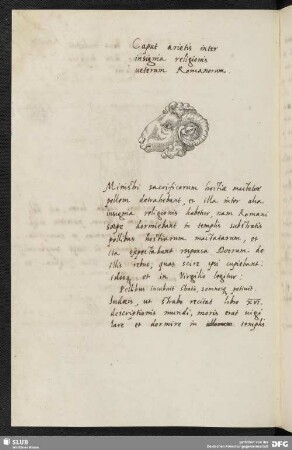 Caput arietis inter
insignia religionis
ueterum Romanorum.
Ministri sacrificorum hostiæ mactatæ
pellem detrahebant, et illa inter alia
insignia religionis habetur, nam Romani
sæpe dormiebant in templis substratis
pellibus hostiarum mactatarum, et
ita expectabant responsa Deorum de
illis rebus, quas scire ipsi cupiebant.
ideoq et in Virgilio legitur.
Pellibus incubuit stratis, somnosq petiuit.
Iudæis, ut Strabo recitat libro XVI.
descriptionis mundi, moris erat uigi
lare et dormire in templis
SLUB
DFG